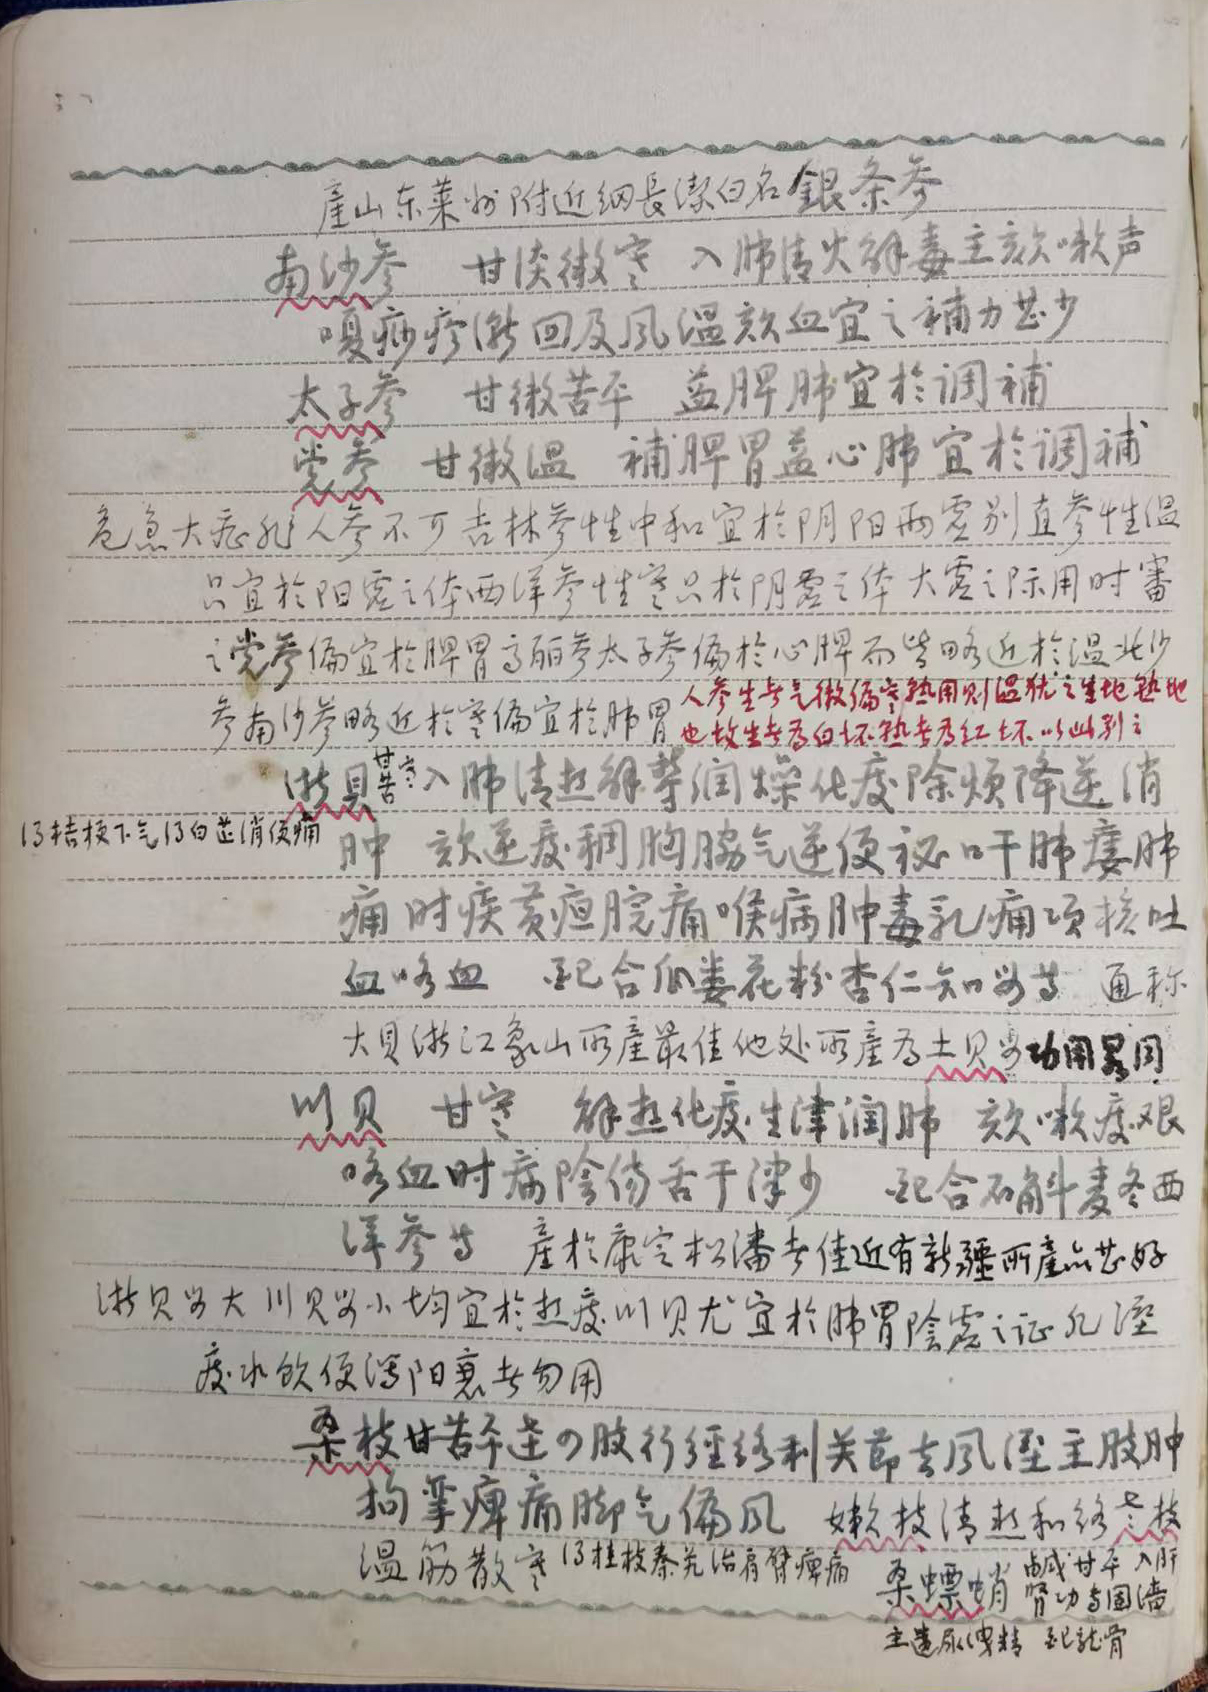 產山东莱州附近细長潔白名銀条参
南沙参 甘淡微寒 入肺清火解毒主欬嗽声
嗄痧疹漸回及风温欬血宜之補力甚少
太子参 甘微苦平 益脾肺宜於调補
党参 甘微温 補脾胃益心肺宜於调補
危急大症非人参不可吉林参性中和宜於阴阳两虚别直参性温
只宜於阳虚之体西洋参性寒只於阴虚之体大虚之际用时審
之党参偏宜於脾胃高丽参太子参偏於心脾而皆略近於温北沙
参南沙参略近於寒偏宜於肺胃
人参生者气微偏寒熟用则温犹之生地熟地
也故生者为白坏熟者为红坏以此别之
浙貝 甘苦寒 入肺清热解鬱润燥化痰除烦降逆消
得桔梗下气得白芷消便痈
肿 欬逆痰稠胸脇气逆便祕叶干肺痿肺
痈时疾黄疸脘痛喉病肿毒乳痈项核吐
血咯血 配合瓜蒌花粉杏仁知母等 通称
大貝浙江象山所產最佳他处所產为土貝母功用畧同
川贝 甘寒 解热化痰生津润肺 欬嗽痰艰
咯血时病陰伤舌干津少 配合石斛麦冬西
洋参等 產於康定松潘者佳近有新疆所產亦甚好
浙贝母大川贝母小均宜於热痰川贝尤宜於肺胃陰虚之证凡溼
痰水飲便泻阳衰者勿用
桑枝甘苦平達四肢行經络利关节去风溼主肢肿
拘挛痺痛脚气偏风 嫩枝清热和络老枝
温筋散寒 得桂枝秦艽治肩臂痺痛
桑螵蛸 鹹甘平入肝
腎功专固濇
主遗尿洩精 配龙骨